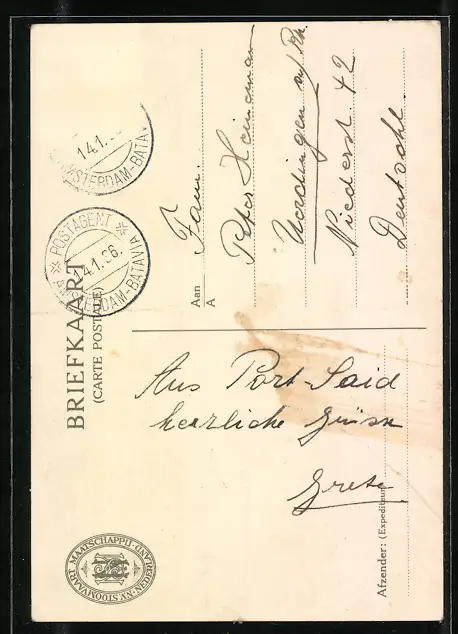 BRIEFKAART
(CARTE POSTALE)
14.1.
AMSTERDAM-BATAVIA
POSTAGENT
14.1.36.
AMSTERDAM-BATAVIA
Aan
A
Fam.
Peter Heineman
Uerdingen a/ Rh.
Niederst 42
Deutschl.
Aus Port-Said
herzliche Grüsse
Grete
Afzender: (Expediteur)
STOOMVAART MAATSCHAPPIJ NEDERLAND